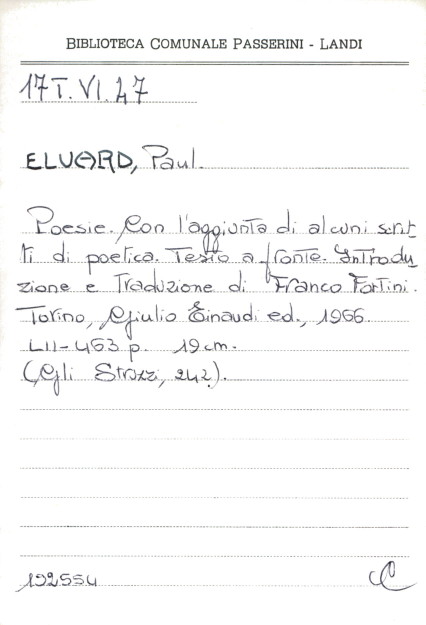 BIBLIOTECA COMUNALE PASSERINI - LANDI
17 T. VI. 47
ELUARD, Paul.
Poesie. Con l'aggiunta di alcuni scrit
ti di poetica. Testo a fronte. Introdu
zione e Traduzione di Franco Fortini.
Torino, Giulio Einaudi ed., 1966.
LII-463 p. 19 cm.
(Gli Struzzi, 242).
192554